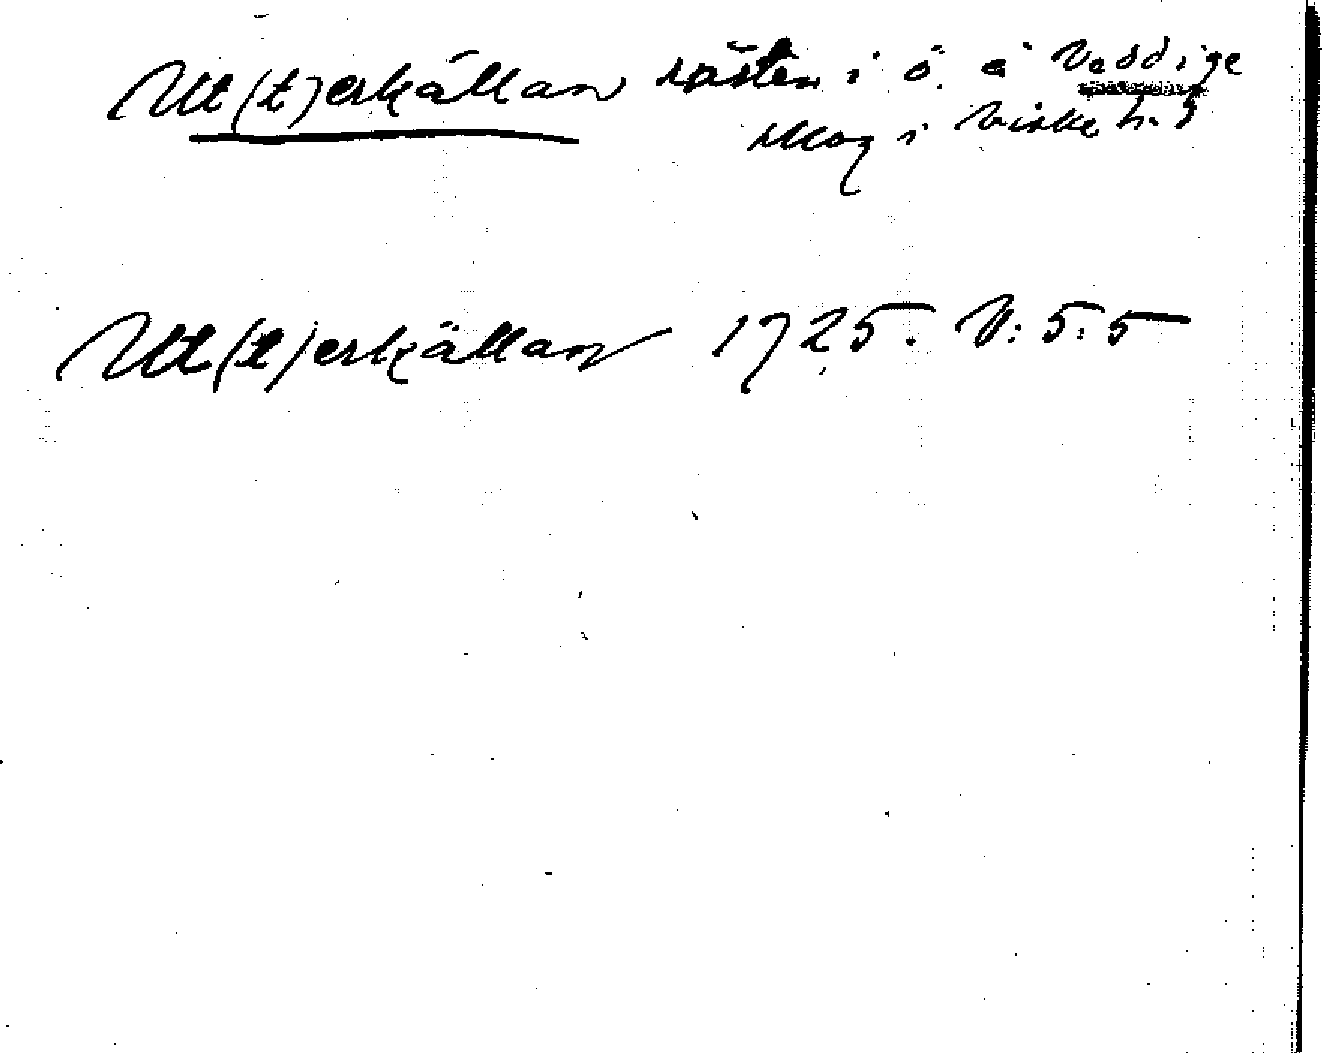 Ut(t)erkällan nästen i ö. å Veddige
skog i Viske h.
Ut(t)erkällan 1725. V: 5: 5